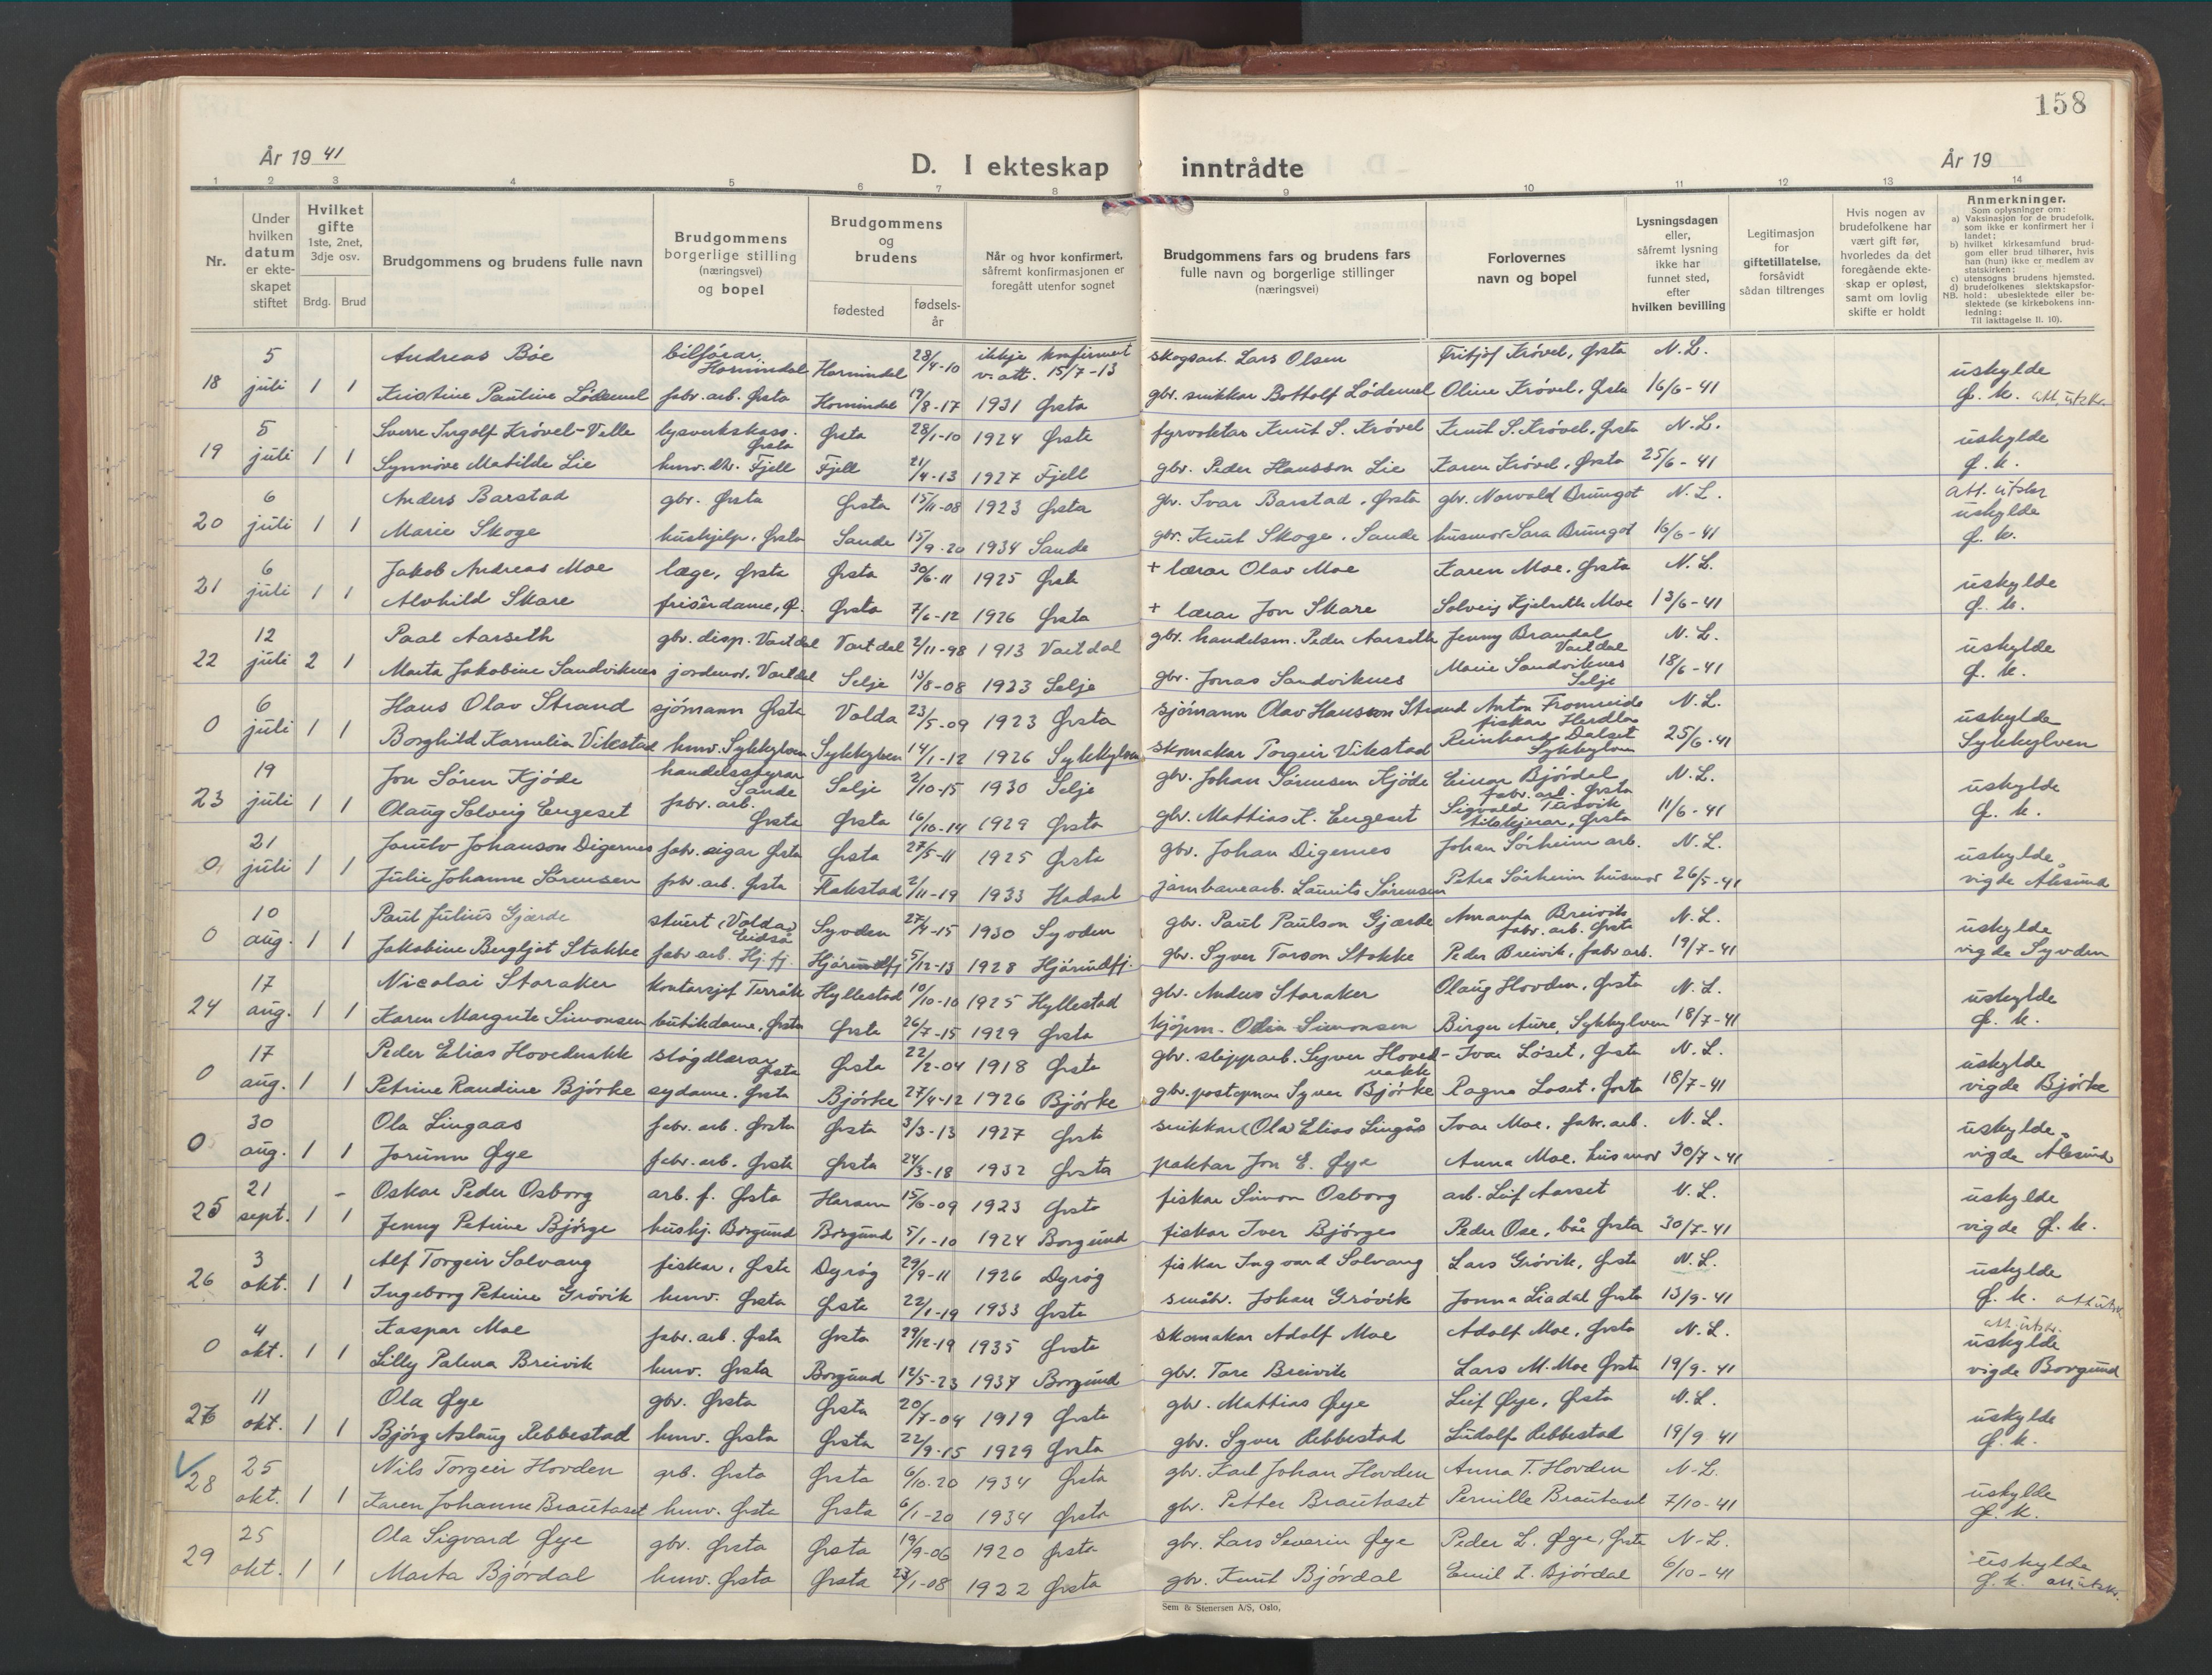 158
År 19 41
D. I ekteskap inntrådte
År 19
1 2 3 4 5 6 7 8 9 10 11 12 13 14
Nr.
Under hvilken datum er ekteskapet stiftet
Hvilket gifte 1ste, 2net, 3dje osv.
Brdg. Brud
Brudgommens og brudens fulle navn
Brudgommens borgerlige stilling (næringsvei) og bopel
Brudgommens og brudens
fødested
fødsels-år
Når og hvor konfirmert, såfremt konfirmasjonen er foregått utenfor sognet
Brudgommens fars og brudens fars fulle navn og borgerlige stillinger (næringsvei)
Forlovernes navn og bopel
Lysningsdagen eller, såfremt lysning ikke har funnet sted, efter hvilken bevilling
Legitimasjon for giftetillatelse, forsåvidt sådan tiltrenges
Hvis nogen av brudefolkene har vært gift før, hvorledes da det foregående ekteskap er opløst, samt om lovlig skifte er holdt
Anmerkninger.
Som oplysninger om:
a) Vaksinasjon for de brudefolk, som ikke er konfirmert her i landet;
b) hvilket kirkesamfund brudgom eller brud tilhører, hvis han (hun) ikke er medlem av statskirken;
c) utensogns brudens hjemsted.
d) brudefolkenes slektskapsforhold: ubeslektede eller beslektede (se kirkebokens innledning:
NB. Til iakttagelse II. 10).
18 5 juli 1 1 Andreas Bøe bilførar, Hornindal Hornindal 28/4-10 ikkje konfirmert v. att. 15/7-13 skogsarb. Lars Olsen Fritjof Krøvel, Ørsta N.L.
Kristine Pauline Lødemel fabr. arb. Ørsta Hornindal 19/8-17 1931 Ørsta gbr. snikkar Bottolf Lødemel Oline Krøvel, Ørsta 16/6-41 uskylde Ø. k. att. utskr.
19 5 juli 1 1 Sverre Ingolf Krøvel-Velle lysverkskass. Ørsta Ørsta 28/1-10 1924 Ørsta fyrvaktar Knut S. Krøvel Knut S. Krøvel, Ørsta N.L.
Synnøve Matilde Lie husv. d. Fjell Fjell 21/4-13 1927 Fjell gbr. Peder Hansson Lie Karen Krøvel, Ørsta 25/6-41 uskylde Ø. k.
20 6 juli 1 1 Anders Barstad gbr. Ørsta Ørsta 15/11-08 1923 Ørsta gbr. Ivar Barstad, Ørsta gbr. Norvald Brungot N.L. att. utskr
Marie Skoge hushjelp, Ørsta Sande 15/9-20 1934 Sande gbr. Knut Skoge, Sande husmor Sara Brungot 16/6-41 uskylde Ø. k.
21 6 juli 1 1 Jakob Andreas Moe læge, Ørsta Ørsta 30/6-11 1925 Ørsta + lærar Olav Moe Karen Moe, Ørsta N.L.
Alvhild Skare frisørdame, Ø. Ørsta 7/6-12 1926 Ørsta + lærar Jon Skare Solveig Kjelseth Moe 13/6-41 uskylde Ø. k.
22 12 juli 2 1 Paal Aarseth gbr. disp. Vartdal Vartdal 2/11-98 1913 Vartdal gbr. handelsm. Peder Aarseth Jenny Brandal Vartdal N.L.
Marta Jakobine Sandviknes jordmor, Vartdal Selje 13/8-08 1923 Selje gbr. Jonas Sandviknes Marie Sandviknes Selje 18/6-41 uskylde Ø. k.
0 6 juli 1 1 Hans Olav Strand sjømann Ørsta Volda 23/5-09 1923 Ørsta sjømann Olav Hansson Strand Anton Fromreide fiskar Herdla N.L.
Borghild Kornelia Vikstad husv. Sykkylven Sykkylven 14/1-12 1926 Sykkylven skomakar Torgeir Vikstad Reinhard Dalset Sykkylven 25/6-41 uskylde Sykkylven
23 19 juli 1 1 Jon Søren Kjøde handelsstyrar Sande Selje 2/10-15 1930 Selje gbr. Johan Sørensen Kjøde Einar Bjørdal fabr. arb. Ørsta N.L.
Olaug Solveig Engeset fabr. arb. Ørsta Ørsta 16/10-14 1929 Ørsta gbr. Mattias K. Engeset Sigvald Tusvik tilskjerar, Ørsta 11/6-41 uskylde Ø. k.
0 21 juli 1 1 Johanson Digernes fabr. eigar Ørsta Ørsta 27/5-11 1925 Ørsta gbr. Johan Digernes Johan Sørheim arb. N.L.
Julie Johanne Sørensen fabr. arb. Ørsta Flakstad 2/11-19 1933 Hadsel jarnbanearb. Laurits Sørensen Petra Sørheim husmor 26/5-41 uskylde. vigde Ålesund
0 10 aug. 1 1 Paul Julius Gjærde stuert (Volda) Eidså Syvden 27/4-15 1930 Syvden gbr. Paul Paulson Gjærde Amanda Breivik fabr. arb. Ørsta N.L.
Jakobine Bergljot Stakke fabr. arb. Hj.fj. Hjørundfj 5/12-13 1928 Hjørundfj. gbr. Syver Tarson Stakke Peder Breivik, fabr arb. 19/7-41 uskylde vigde Syvden
24 17 aug. 1 1 Nicolai Storaker kontorsjef Terråk Hyllestad 10/10-10 1925 Hyllestad gbr. Anders Storaker Olaug Hovden, Ørsta N.L.
Karen Margrete Simonsen butikdame, Ørsta Ørsta 26/7-15 1929 Ørsta kjøpm. Odin Simonsen Birger Aure, Sykkylven 18/7-41 uskylde Ø. k.
0 17 aug. 1 1 Peder Elias Hovednakk sløgdlærar Ørsta Ørsta 22/2-04 1918 Ørsta gbr. slipparb. Syver Hoved-nakk Ivar Løset, Ørsta N.L.
Petrine Randine Bjørke sydame, Ørsta Bjørke 27/4-12 1926 Bjørke gbr. postopnar Syver Bjørke Ragna Løset, Ørsta 18/7-41 uskylde vigde Bjørke
0 30 aug. 1 1 Ola Lingaas fabr. arb. Ørsta Ørsta 3/3-13 1927 Ørsta snikkar (Ola) Elias Lingås Ivar Moe, fabr. arb. N.L.
Jorunn Øye fabr. arb. Ørsta Ørsta 24/3-18 1932 Ørsta paktar Jon E. Øye Anna Moe, husmor 30/7-41 uskylde. vigde Ålesund
25 21 sept. 1 1 Oskar Peder Osborg arb. f. Ørsta Haram 15/6-09 1923 Ørsta fiskar Simon Osborg arb. Leif Aarset N.L.
Jenny Petrine Bjørge hushj. Borgund Borgund 5/1-10 1924 Borgund fiskar Iver Bjørges Peder Ose, båe Ørsta 30/7-41 uskylde vigde Ø. k.
26 3 okt. 1 1 Alf Torgeir Solvang fiskar, Ørsta Dyrøy 29/9-11 1926 Dyrøy fiskar Ingvard Solvang Lars Grøvik, Ørsta N.L.
Ingeborg Petrine Grøvik husv. Ørsta Ørsta 22/1-19 1933 Ørsta småbr. Johan Grøvik Jonna Liadal Ørsta 13/9-41 uskylde Ø. k. att utskr
0 4 okt. 1 1 Kaspar Moe fabr. arb. Ørsta Ørsta 27/12-19 1935 Ørsta skomakar Adolf Moe Adolf Moe, Ørsta N.L. att. utskr.
Lilly Palma Breivik husv. Ørsta Borgund 12/5-23 1937 Borgund gbr. Tore Breivik Lars M. Moe Ørsta 19/9-41 uskylde vigde Borgund
27 11 okt. 1 1 Ola Øye gbr. Ørsta Ørsta 20/7-04 1919 Ørsta gbr. Mattias Øye Leif Øye, Ørsta N.L.
Bjørg Aslaug Rebbestad husv. Ørsta Ørsta 22/9-15 1929 Ørsta gbr. Syver Rebbestad Ludolf Rebbestad 19/9 41 uskylde Ø. k.
28 25 okt. 1 1 Nils Torgeir Hovden arb. Ørsta Ørsta 6/10-20 1934 Ørsta gbr. Karl Johan Hovden Anna T. Hovden N.L.
Karen Johanne Brautaset husv. Ørsta Ørsta 6/1-20 1934 Ørsta gbr. Petter Brautaset Pernille Brautaset 7/10-41 uskylde Ø. k.
29 25 okt. 1 1 Ola Sigvard Øye gbr. Ørsta Ørsta 19/9-06 1920 Ørsta gbr. Lars Severin Øye Peder L. Øye, Ørsta N.L.
Marta Bjørdal husv. Ørsta Ørsta 23/1-08 1922 Ørsta gbr. Knut Bjørdal Emil K. Bjørdal 6/10-41 uskylde Ø. k. att. utskr.
Sem & Stenersen A/S, Oslo.